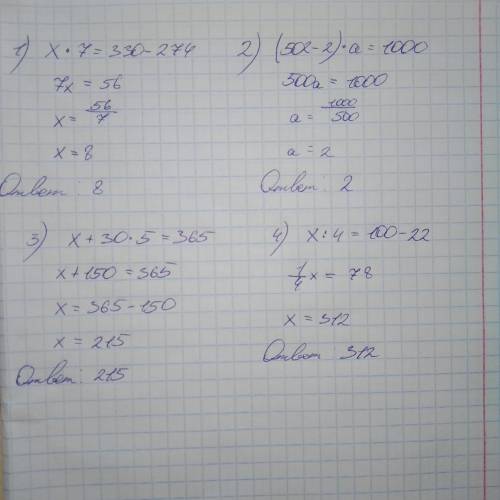 1) x · 7 = 330 - 274
7x = 56
x = 56/7
x = 8
Ответ: 8
2) (502 - 2) · a = 1000
500a = 1000
a = 1000/500
a = 2
Ответ: 2
3) x + 30 · 5 = 365
x + 150 = 365
x = 365 - 150
x = 215
Ответ: 215
4) x : 4 = 100 - 22
1/4 x = 78
x = 312
Ответ 312